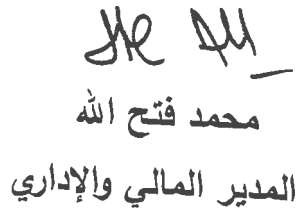 محمد فتح الله
المدير المالي والإداري